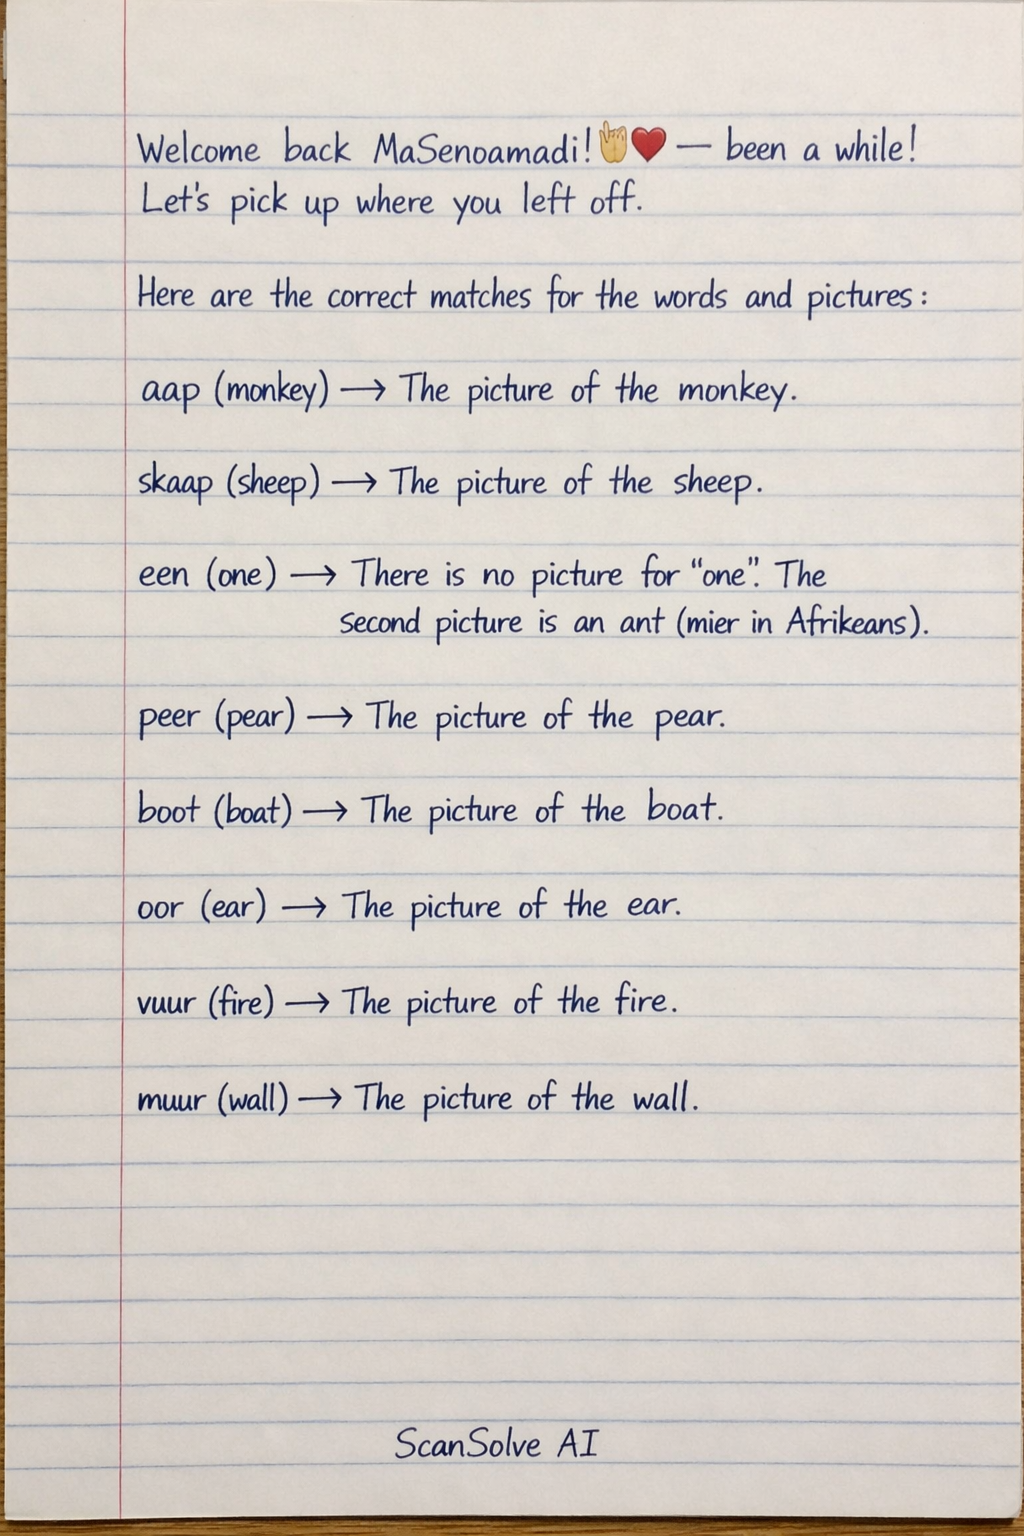 Welcome back MaSenoamadi!🤘❤️ — been a while!
Let's pick up where you left off.
Here are the correct matches for the words and pictures:
aap (monkey) → The picture of the monkey.
skaap (sheep) → The picture of the sheep.
een (one) → There is no picture for "one". The
second picture is an ant (mier in Afrikeans).
peer (pear) → The picture of the pear.
boot (boat) → The picture of the boat.
oor (ear) → The picture of the ear.
vuur (fire) → The picture of the fire.
muur (wall) → The picture of the wall.
ScanSolve AI